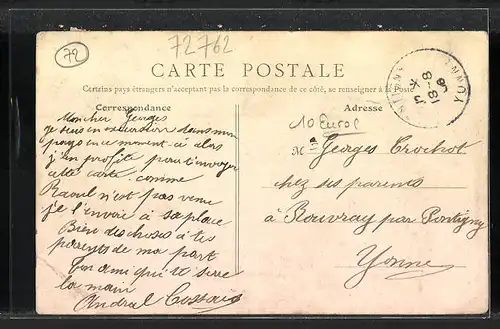 72
72762
CARTE POSTALE
Certains pays étrangers n'acceptant pas la correspondance de ce côté, se renseigner à la Poste
Correspondance
Adresse
10 Euros
YONNE
Mon cher Georges
je suis en vacances dans mon
pays en ce moment-ci alors
j'en profite pour t'envoyer
cette carte comme
Raoul n'est pas venu
je l'envoie à sa place
Bien des choses à tes
parents de ma part
Ton ami qui te serre
la main
M Georges Crochot
chez ses parents
à Rouvray par Pontigny
Yonne